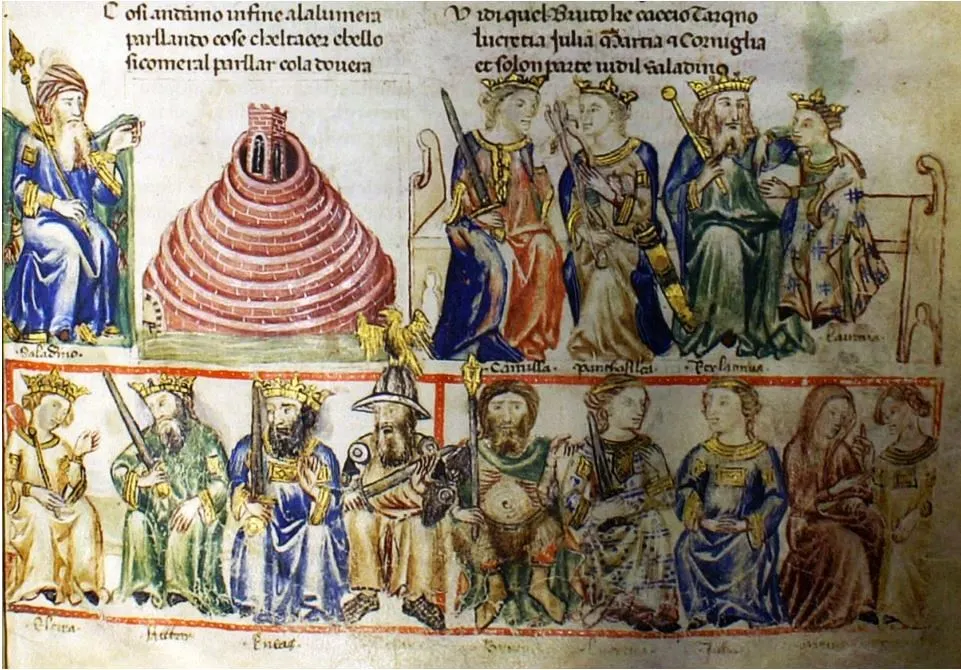 C osi andamo infine alalumera
parllando cose cheltacer ebello
sicomeral parllar cola dovera
V idi quel Bruto he caccio Tarqno
lucretia Julia Martia 7 Corniglia
et solon parte vidil Saladino
Saladino.
Camilla.
Eneas
Julia